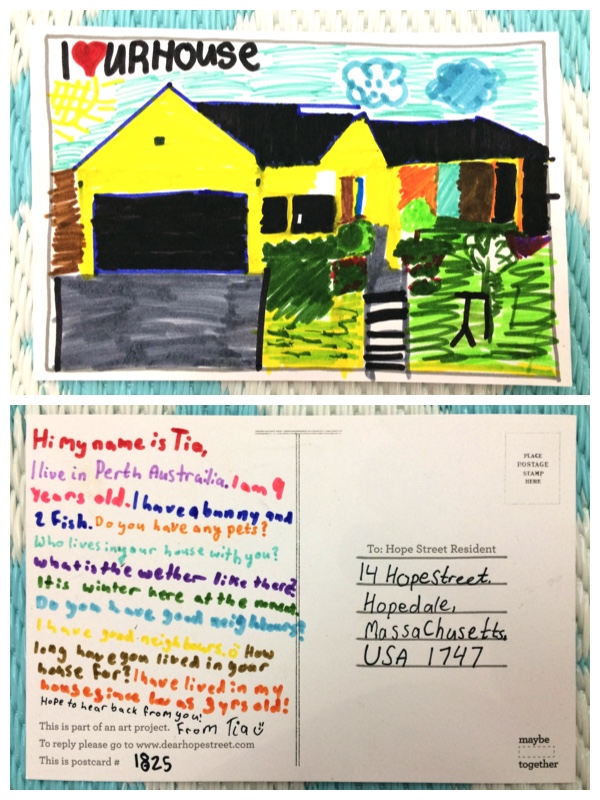 I ❤ URHOUSE
Hi my name is Tia,
I live in Perth Austrailia. I am 9
years old. I have a bunny and
2 Fish. Do you have any pets?
Who lives in your house with you?
what is the wether like there?
It is winter here at the moment.
Do you have good neighbours?
I have good neighbours. How
long have you lived in your
house for? I have lived in my
house since I was 3 yrs old!
Hope to hear back from you!
From Tia
This is part of an art project.
To reply please go to www.dearhopestreet.com
This is postcard # 1825
PLACE
POSTAGE
STAMP
HERE
To: Hope Street Resident
14 Hopestreet.
Hopedale,
Massachusetts,
USA 1747
maybe
together